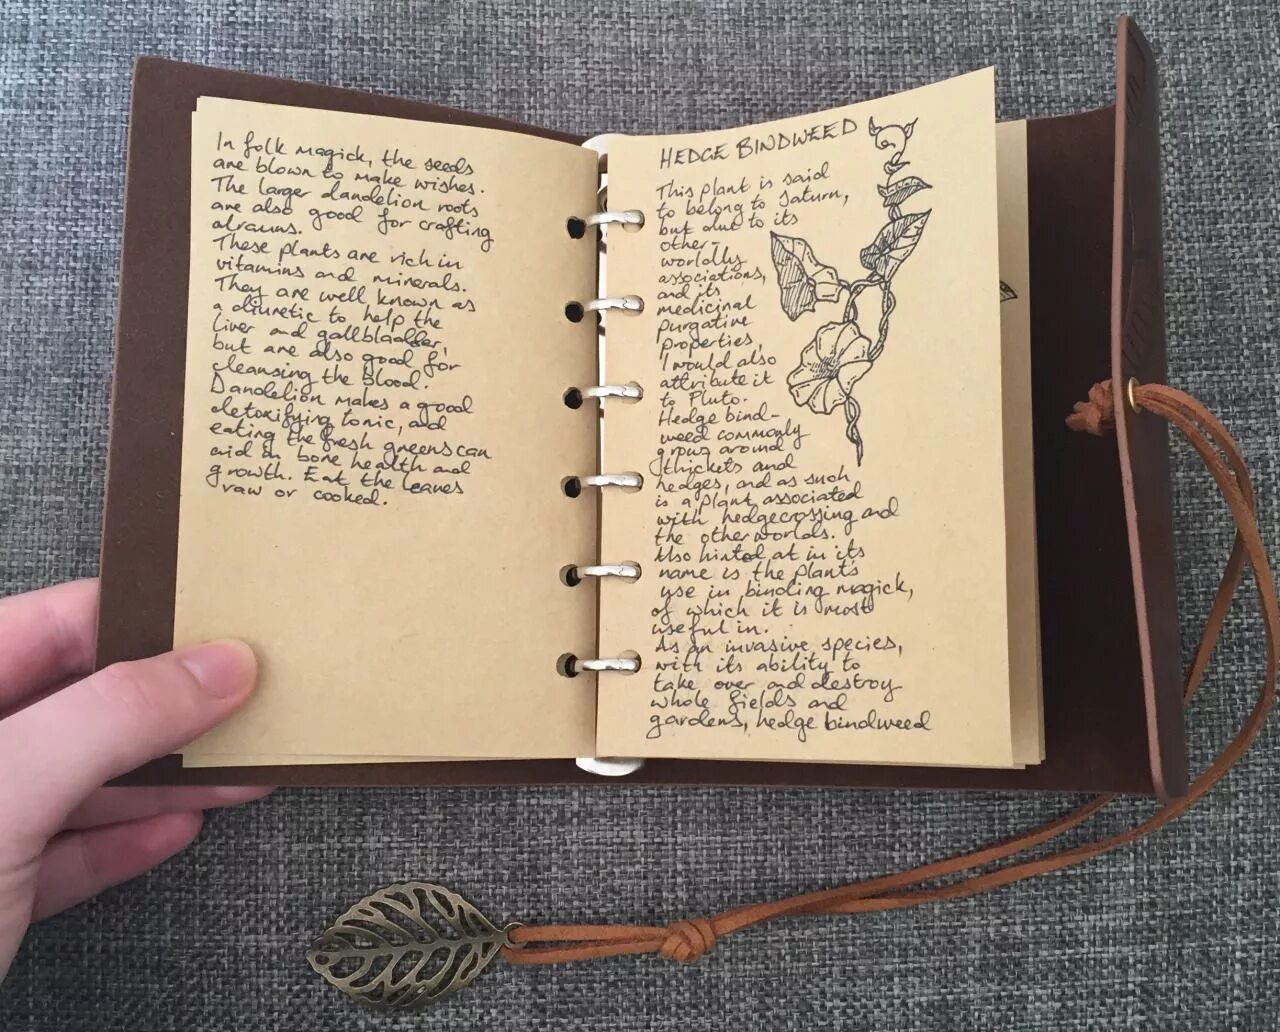 In folk magick, the seeds
are blown to make wishes.
The larger dandelion roots
are also good for crafting
alrauns.
These plants are rich in
vitamins and minerals.
They are well known as
a diuretic to help the
liver and gallbladder,
but are also good for
cleansing the blood.
Dandelion makes a good
detoxifying tonic, and
eating the fresh greens can
aid in bone health and
growth. Eat the leaves
raw or cooked.
HEDGE BINDWEED
This plant is said
to belong to Saturn,
but due to its
other-
worldly
associations,
and its
medicinal
purgative
properties,
I would also
attribute it
to Pluto.
Hedge bind-
weed commonly
grows around
thickets and
hedges, and as such
is a plant associated
with hedgecrossing and
the otherworlds.
Also hinted at in its
name is the plant's
use in binding magick,
of which it is most
useful in.
As an invasive species,
with its ability to
take over and destroy
whole fields and
gardens, hedge bindweed